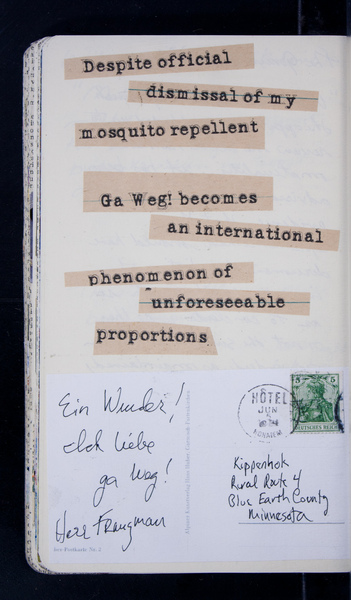 Despite official
dismissal of my
mosquito repellent
Ga Weg! becomes
an international
phenomenon of
unforeseeable
proportions
Ein Wunder!
Ich liebe
ga weg!
Herr
HÔTEL
JUN
5 5
DEUTSCHES REICH
Kippenhok
Rural Route 4
Blue Earth County
Minnesota